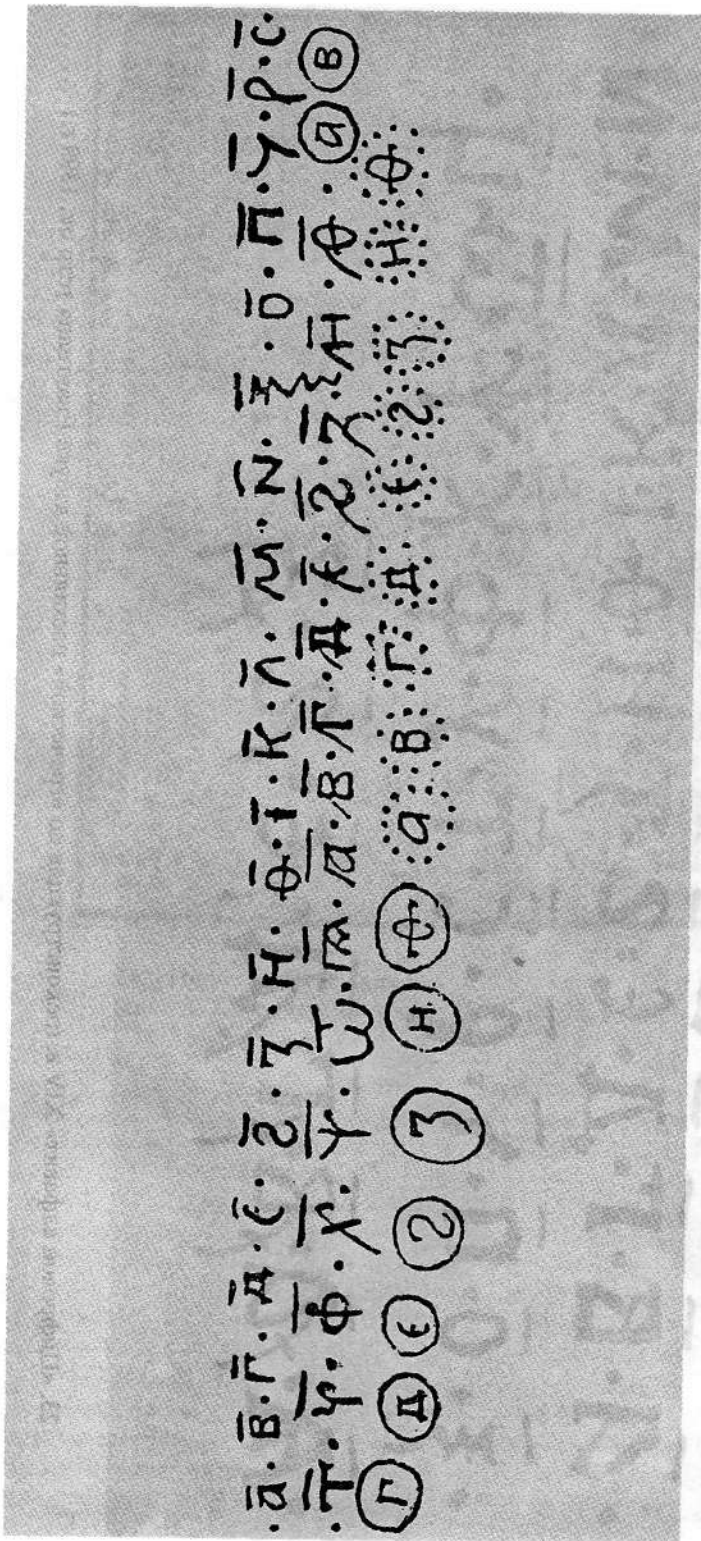 ·а҃·в҃·г҃·д҃·є҃·ꙅ҃·з҃·и҃·ѳ҃·і҃·к҃·л҃·м҃·н҃·ѯ҃·о҃·п҃·ч҃·р҃·с҃·
·т҃·у҃·ф҃·х҃·ѱ҃·ѿ·ѧ҃·҂а҃·҂в҃·҂г҃·҂д҃·҂є҃·҂ꙅ҃·҂з҃·҂и҃·҂ѳ҃· а⃝ в⃝
г⃝ д⃝ є⃝ ꙅ⃝ з⃝ и⃝ ѳ⃝ а҈ в҈ г҈ д҈ є҈ ꙅ҈ з҈ и҈ ѳ҈